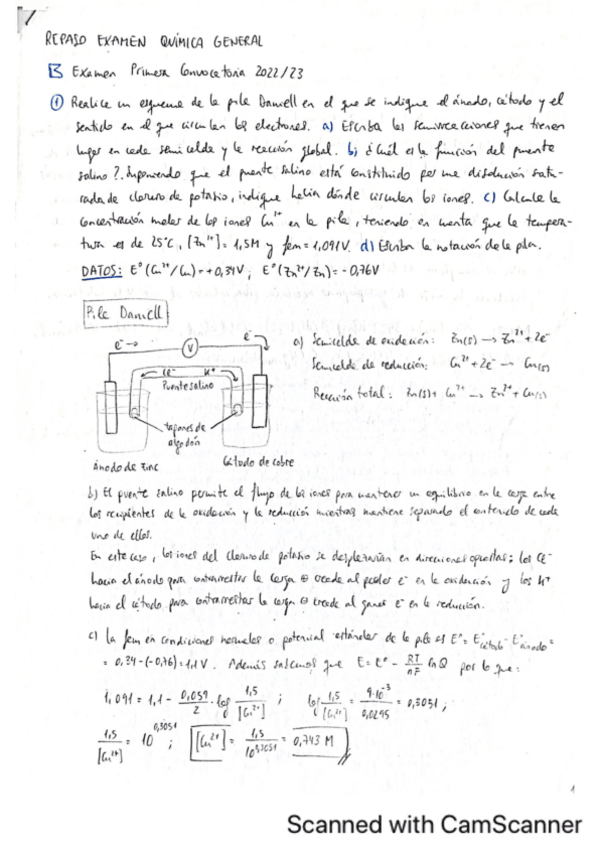 REPASO EXAMEN QUÍMICA GENERAL
B Examen Primera Convocatoria 2022/23
① Realice un esquema de la pila Daniell en el que se indique el ánodo, cátodo y el
sentido en el que circulan los electrones. a) Escriba las semirreacciones que tienen
lugar en cada semicelda y la reacción global. b) ¿Cuál es la función del puente
salino?. Suponiendo que el puente salino está constituido por una disolución satu-
rada de cloruro de potasio, indique hacia dónde circulan los iones. c) Calcule la
concentración molar de los iones Cu²⁺ en la pila, teniendo en cuenta que la tempera-
tura es de 25°C, [Zn²⁺] = 1,5M y fem = 1,091V. d) Escriba la notación de la pila.
DATOS: E°(Cu²⁺/Cu) = +0,34V; E°(Zn²⁺/Zn) = -0,76V
Pila Daniell
e⁻ → V e⁻
Cl⁻ K⁺
Puente salino
tapones de
algodón
ánodo de zinc
Cátodo de cobre
a) Semicelda de oxidación: Zn(s) → Zn²⁺ + 2e⁻
Semicelda de reducción: Cu²⁺ + 2e⁻ → Cu(s)
Reacción total: Zn(s) + Cu²⁺ → Zn²⁺ + Cu(s)
b) El puente salino permite el flujo de los iones para mantener un equilibrio en la carga entre
los recipientes de la oxidación y la reducción mientras mantiene separado el contenido de cada
uno de ellos.
En este caso, los iones del cloruro de potasio se desplazarían en direcciones opuestas: los Cl⁻
hacia el ánodo para contrarrestar la carga ⊕ creada al perder e⁻ en la oxidación y los K⁺
hacia el cátodo para contrarrestar la carga ⊖ creada al ganar e⁻ en la reducción.
c) La fem en condiciones normales o potencial estándar de la pila es E° = E°cátodo - E°ánodo =
= 0,34 - (-0,76) = 1,1 V. Además sabemos que E = E° - RT/nF lnQ por lo que:
1,091 = 1,1 - 0,059/2 · log 1,5/[Cu²⁺] ; log 1,5/[Cu²⁺] = 9·10⁻³/0,0295 = 0,3051 ;
1,5/[Cu²⁺] = 10^0,3051 ; [Cu²⁺] = 1,5/10^0,3051 = 0,743 M
1
Scanned with CamScanner